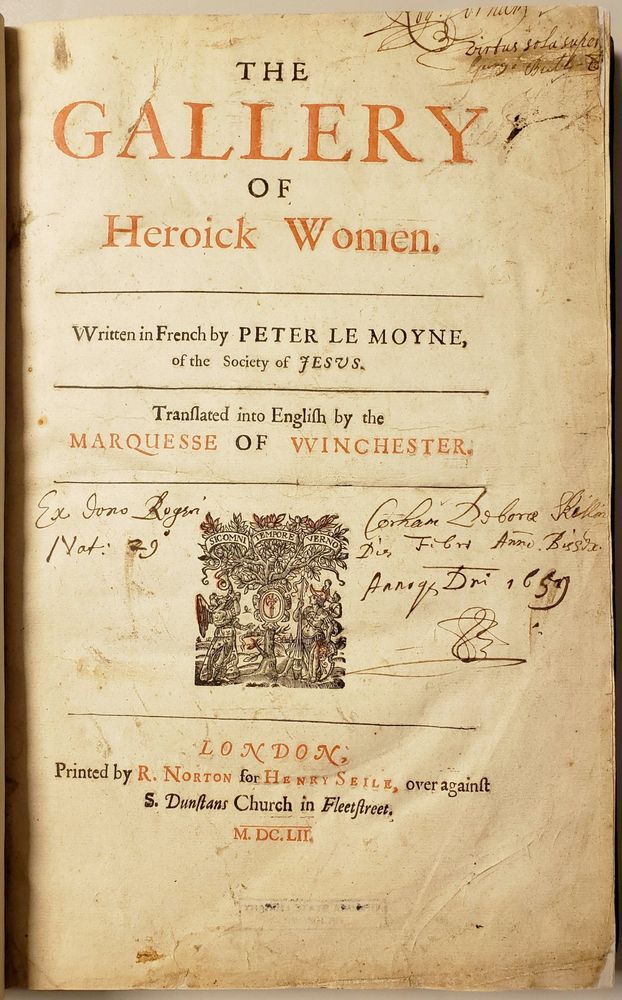 Virtus sola super
THE
GALLERY
OF
Heroick Women.
Written in French by PETER LE MOYNE,
of the Society of JESVS.
Tranſlated into Engliſh by the
MARQUESSE OF WINCHESTER.
Ex dono Rogeri Corham Deboræ
Nat: 29º Die Febri Anno. Bissex.
Annoq Dni 1659
SIC OMNI TEMPORE VERNO
LONDON,
Printed by R. NORTON for HENRY SEILE, over againſt
S. Dunſtans Church in Fleetſtreet.
M. DC. LII.